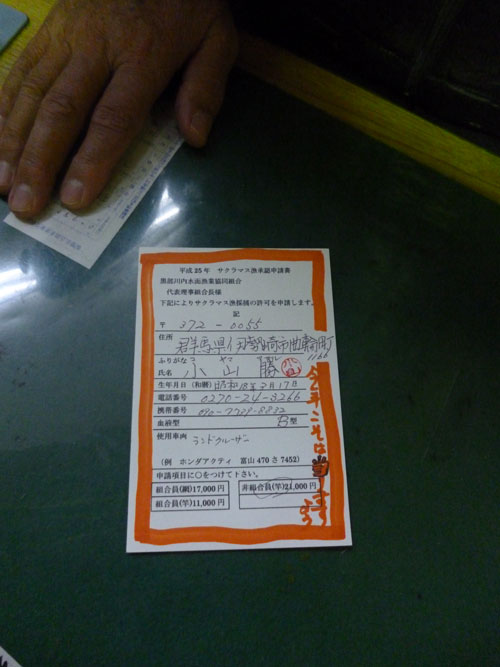 平成25年 サクラマス漁承認申請書
黒部川内水面漁業協同組合
代表理事組合長様
下記によりサクラマス漁採捕の許可を申請します。
記
〒 372-0055
住所 群馬県伊勢崎市曲輪町
ふりがな
氏名 小山 勝
生年月日(和暦) 昭和18年2月17日
電話番号 0270-24-3266
携帯番号
血液型 B型
使用車両 ランドクルーザー
(例 ホンダアクティ 富山 470 さ 7452)
申請項目に○をつけて下さい。
組合員(網)17,000円 非組合員(竿)21,000円
組合員(竿)11,000円
今年こそは